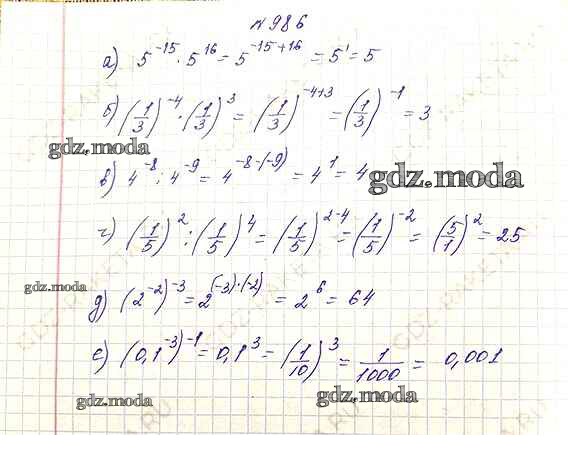 №986
а) 5^-15 · 5^16 = 5^-15+16 = 5^1 = 5
б) (1/3)^-4 · (1/3)^3 = (1/3)^-4+3 = (1/3)^-1 = 3
gdz.moda
в) 4^-8 : 4^-9 = 4^-8-(-9) = 4^1 = 4
gdz.moda
г) (1/5)^2 : (1/5)^4 = (1/5)^2-4 = (1/5)^-2 = (5/1)^2 = 25
gdz.moda
д) (2^-2)^-3 = 2^(-3)·(-2) = 2^6 = 64
е) (0,1^-3)^-1 = 0,1^3 = (1/10)^3 = 1/1000 = 0,001
gdz.moda
gdz.moda